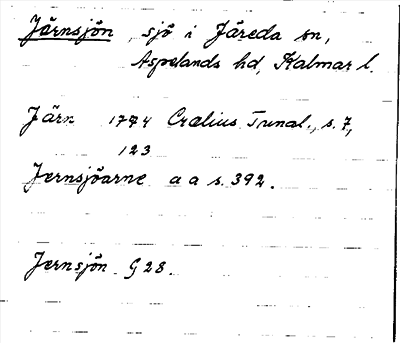 Järnsjön, sjö i Järeda sn,
Aspelands hd, Kalmar l.
Järn 1774 Crælius Tunal., s. 7,
123
Jernsjöarne a a s. 392.
Jernsjön G 28.